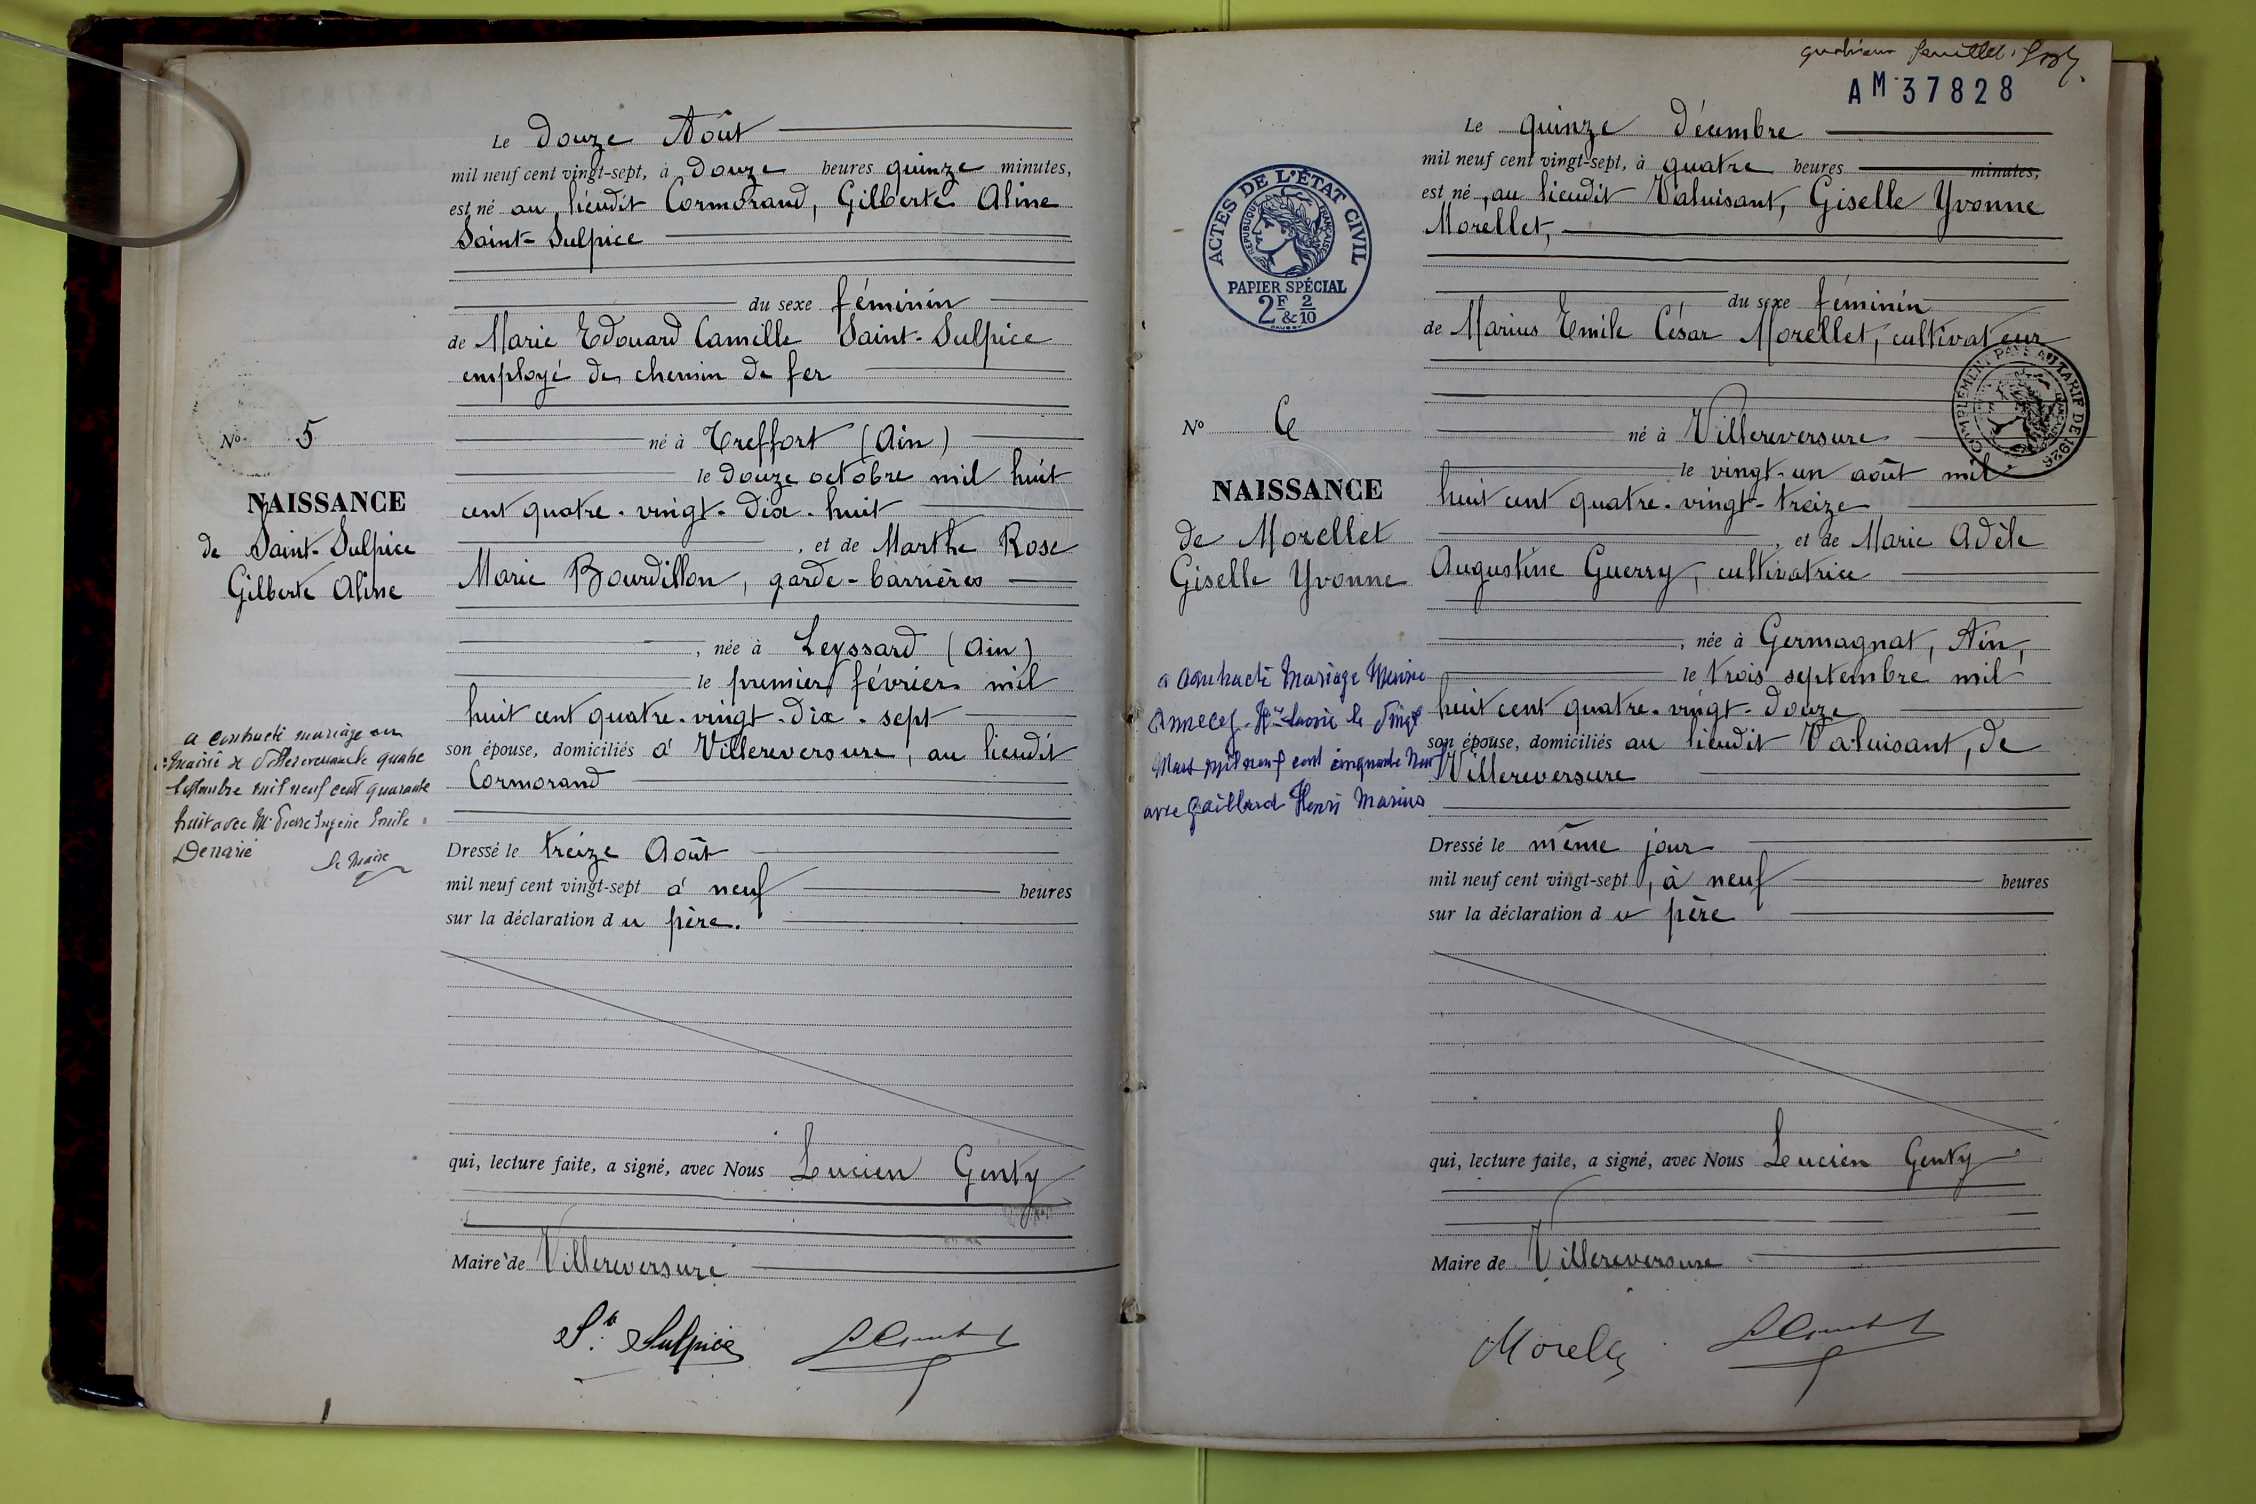 Le Douze Août
mil neuf cent vingt-sept, à Douze heures quinze minutes,
est né au lieudit Cormorand, Gilberte Aline
Saint-Sulpice
du sexe féminin
de Marie Edouard Camille Saint-Sulpice
employé de chemin de fer
né à Treffort (Ain)
le douze octobre mil huit
cent quatre-vingt-dix-huit
, et de Marthe Rose
Marie Bourdillon, garde-barrières
, née à Leyssard (Ain)
le premier février mil
huit cent quatre-vingt-dix-sept
son épouse, domiciliés à Villereversure, au lieudit
Cormorand
Dressé le treize Août
mil neuf cent vingt-sept à neuf heures
sur la déclaration du père.
qui, lecture faite, a signé, avec Nous Lucien Genty
Maire de Villereversure
St Sulpice
No 5
NAISSANCE
de Saint-Sulpice
Gilberte Aline
a contracté mariage en
mairie de Villereversure le quatre
septembre mil neuf cent quarante
huit avec Mr Pierre Eugène Emile
Denarié
Le Maire
feuillet
AM 37828
Le quinze décembre
mil neuf cent vingt-sept, à quatre heures minutes,
est né, au lieudit Valuisant, Giselle Yvonne
Morellet,
du sexe féminin
de Marius Emile César Morellet, cultivateur
né à Villereversure
le vingt-un août mil
huit cent quatre-vingt-treize
, et de Marie Adèle
Augustine Guerry, cultivatrice
, née à Germagnat, Ain,
le trois septembre mil
huit cent quatre-vingt-douze
son épouse, domiciliés au lieudit Valuisant, de
Villereversure
Dressé le même jour
mil neuf cent vingt-sept, à neuf heures
sur la déclaration du père
qui, lecture faite, a signé, avec Nous Lucien Genty
Maire de Villereversure
ACTES DE L'ÉTAT CIVIL
RÉPUBLIQUE FRANÇAISE
PAPIER SPÉCIAL
2F & 2/10
COMPLÉMENT PAYÉ AU TARIF DE 1926
No 6
NAISSANCE
de Morellet
Giselle Yvonne
a contracté mariage Mairie
Annecy Hte Savoie le vingt
Mars mil neuf cent cinquante neuf
avec Gaillard Henri Marius